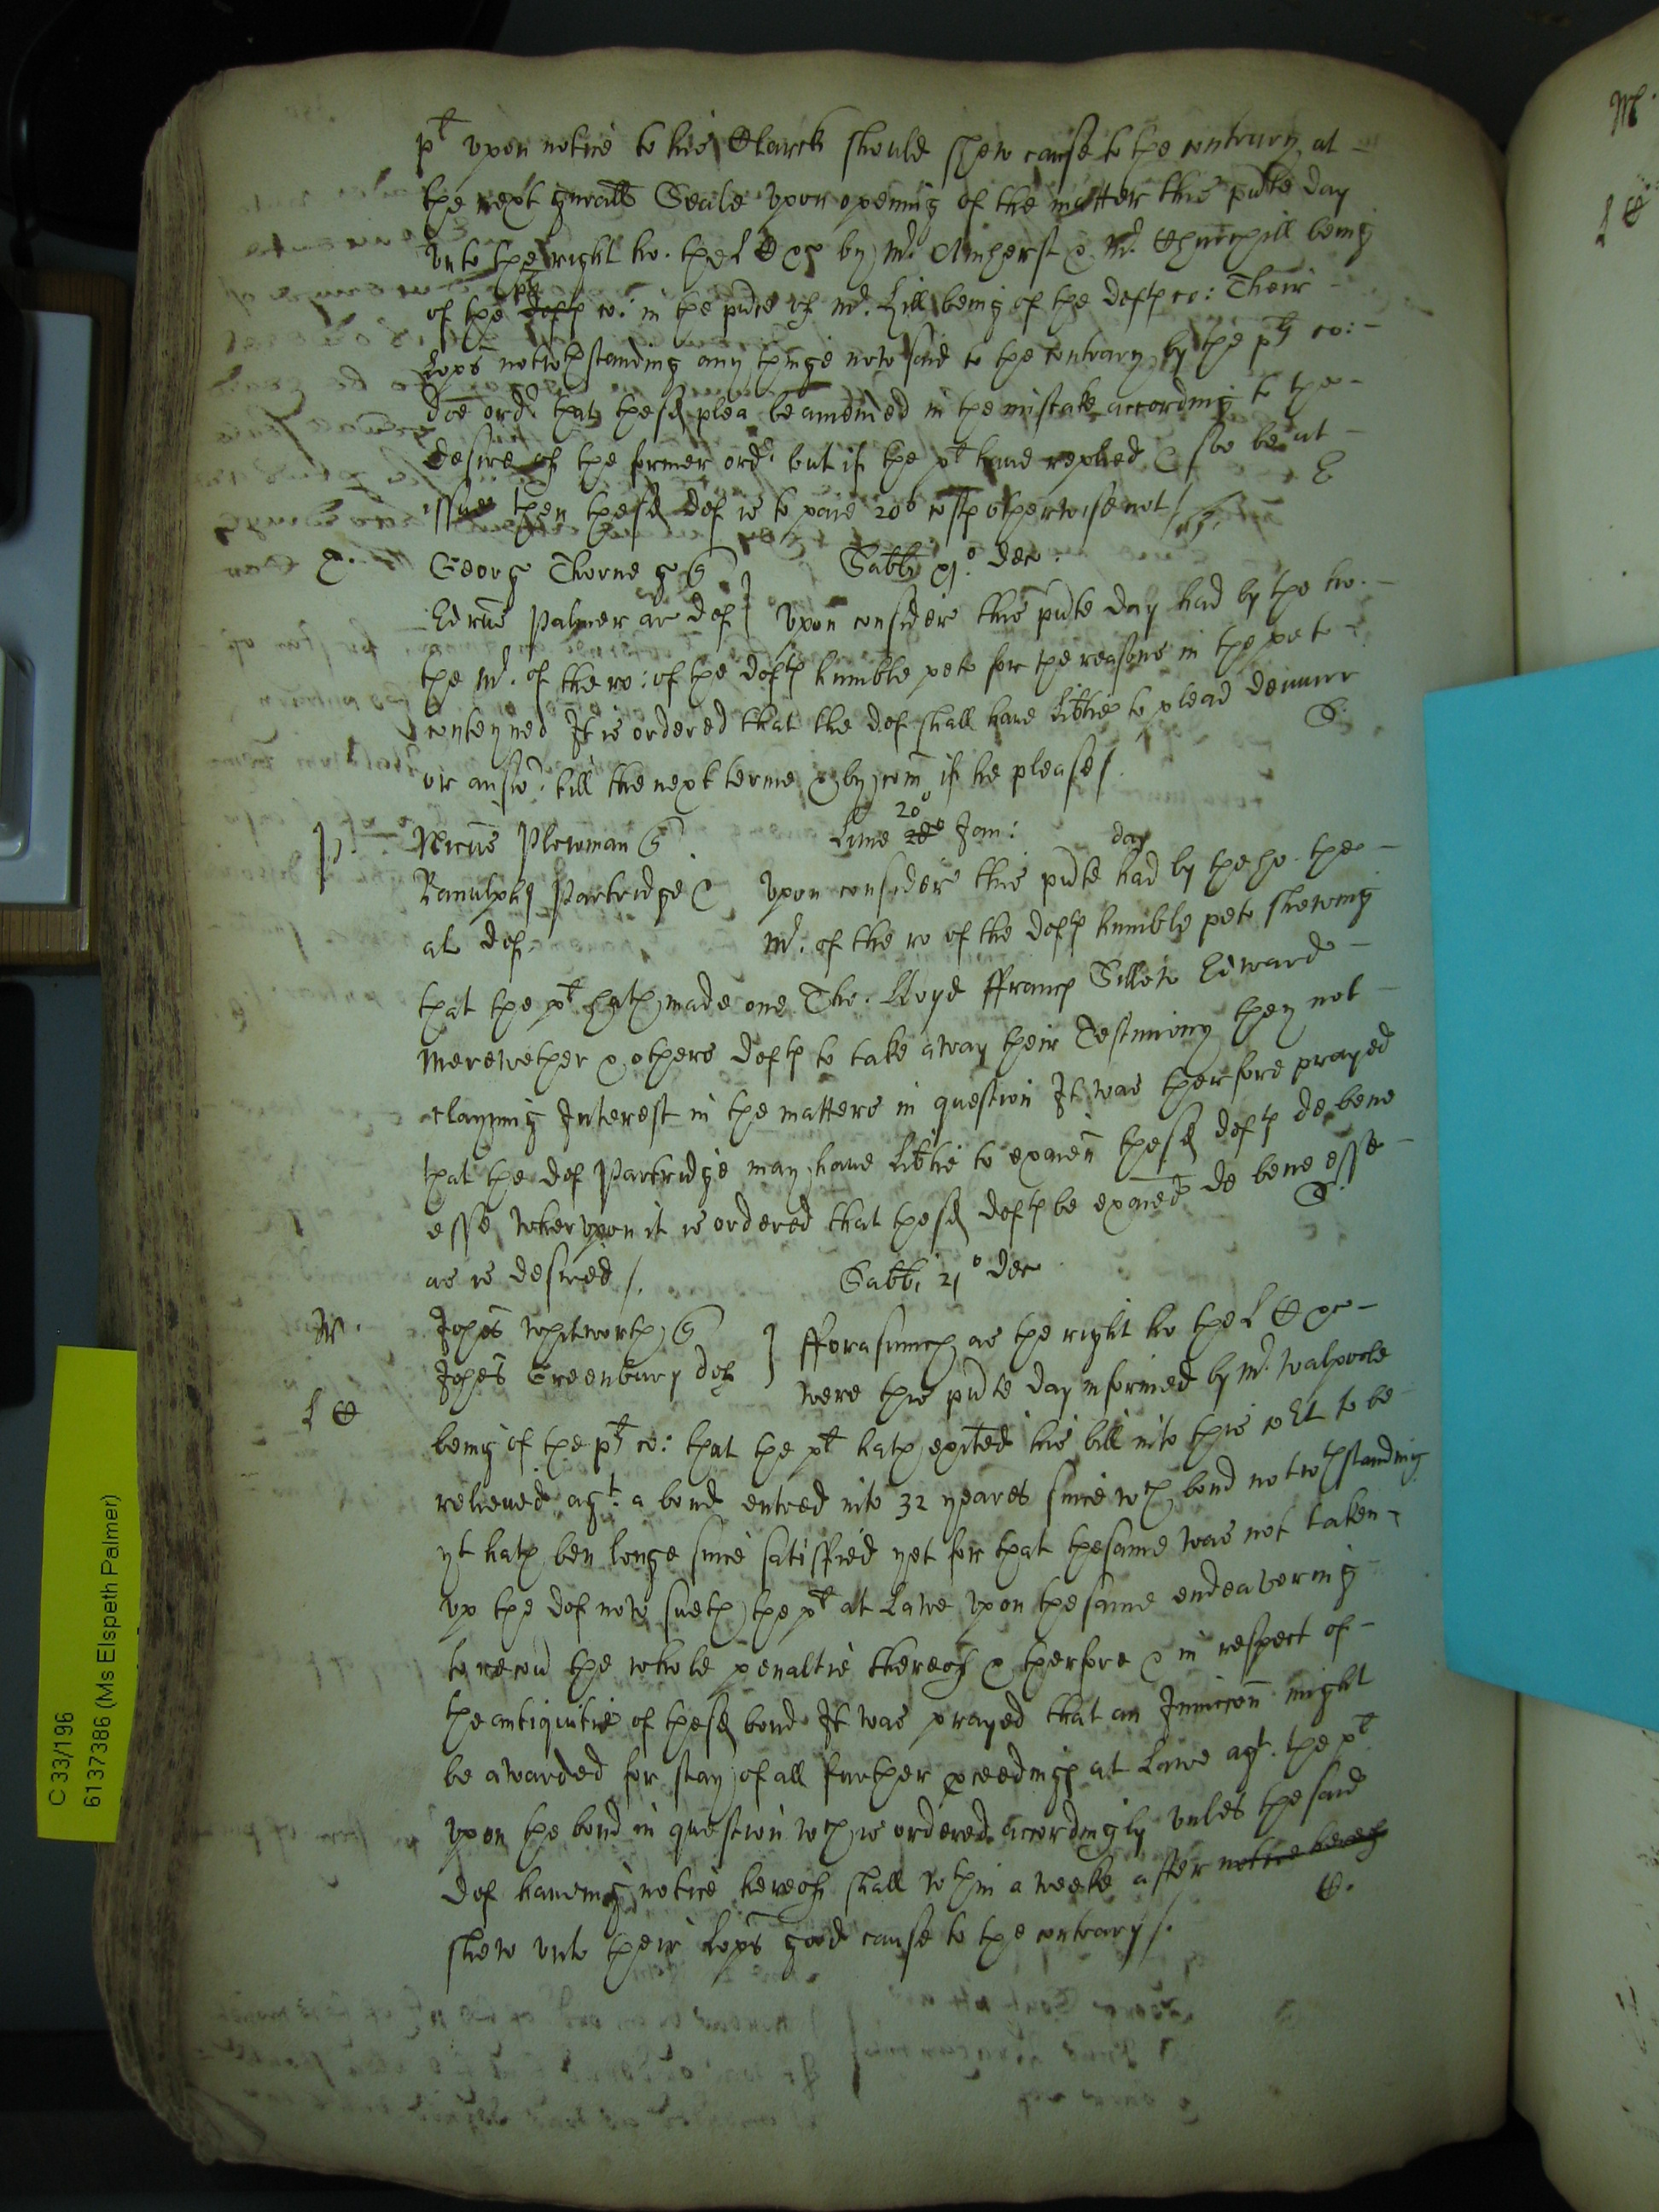 plt vpon notice to his Clarck should shew cause to the contrary at
the next gnrall Seale vpon opening of the matter this pnte day
vnto the right ho. the L C &c by Mr. Amherst & Mr. Churchill being
of the defts plts co: in the pnce of Mr. Hill being of the defts co: Their
Lopps notwthstanding any thinge now said to the contrary by the plts co:
doe ordr that the sd plea be amended in the mistake according to the
desire of the former ordr but if the plt haue replied & soe be at
issue then the sd def is to paie 20s costs otherwise not /
E
Georg Thorne q
Sabbi 21o dec:
Edrus Palmer ar def
Vpon consideir this pnte day had by the ho.
the Mr. of the ro: of the defts humble peto for the reasons in the peto
conteyned It is ordered that the def shall haue libtie to plead demurr
or answ. till the next terme & by com if he please /.
S.
P.
Nicus Plowman q
Lune 20o Jan:
day
Ranulphus Partridge &
Vpon consider this pnte had by the ho. the
al def.
Mr. of the ro of the defts humble peto shewing
that the plt hath made one Tho. Lloyd ffrancs Sillew Edward
Merewether & others defts to take away their Testimony they not
clayming Interest in the matters in question It was therfore prayed
that the def Partridge may haue libtie to examen the sd defts de bene
esse Wherevpon it is ordered that the sd defts be examed de bene esse
S.
as is desired /.
Sabbi 21o dec
W.
Johes Whitworth q
fforasmuch as the right ho the L C &c
Johes Greenbury def
were this pnte day informed by Mr. Walpoole
L C
being of the plts co: that the plt hath exited his bill into this coUt to be
releiued agt. a bond entred into 32 yeares since wch bond notwthstanding
yt hath ben longe since satisffied yet for that the same was not taken
vp the def now sueth the plt at Lawe vpon the same endeavering
to recou the whole penaltie thereof & therfore & in respect of
the antiquitie of the sd bond It was prayed that an Iniuccon might
be awarded for stay of all further pceedings at Lawe agt. the plt
vpon the bond in question wch is ordered accordingly vnles the said
def haueing notice hereof shall wthin a weeke after notice hereof
C.
shew vnto their Lopps good cause to the contrary /.
C 33/196
6137386 (Ms Elspeth Palmer)